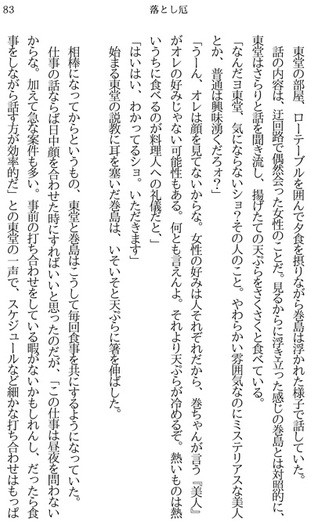 83
落とし厄
東堂の部屋、ローテーブルを囲んで夕食を摂りながら巻島は浮かれた様子で話していた。
話の内容は、迂回路で偶然会った女性のことだ。見るからに浮き立った感じの巻島とは対照的に、
東堂はさらりと話を聞き流し、揚げたての天ぷらをさくさくと食べている。
「なんだヨ東堂、気にならないショ?その人のこと。やわらかい雰囲気なのにミステリアスな美人
とか、普通は興味湧くだろォ?」
「うーん、オレは顔を見てないからな。女性の好みは人それぞれだから、巻ちゃんが言う『美人』
がオレの好みじゃない可能性もある。何とも言えんよ。それより天ぷらが冷めるぞ。熱いものは熱
いうちに食べるのが料理人への礼儀だと、」
「はいはい、わかってるショ。いただきます」
始まる東堂の説教に耳を塞いだ巻島は、いそいそと天ぷらに箸を伸ばした。
相棒になってからというもの、東堂と巻島はこうして毎回食事を共にするようになっていた。
仕事の話ならば日中顔を合わせた時にすればいいと思ったのだが、「この仕事は昼夜を問わない
からな。加えて急な案件も多い。事前の打ち合わせをしている暇がないかもしれんし、だったら食
事をしながら話す方が効率的だ」との東堂の一声で、スケジュールなど細かな打ち合わせはもっぱ